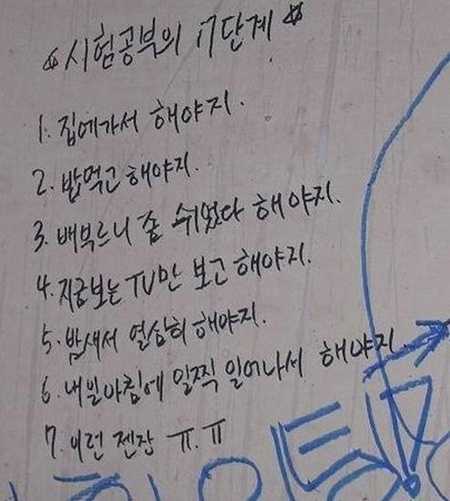 ☆시험공부의 7단계☆
1. 집에가서 해야지.
2. 밥먹고 해야지.
3. 배부르니 좀 쉬었다 해야지.
4. 지금보는 TV만 보고 해야지.
5. 밤새서 열심히 해야지.
6. 내일아침에 일찍 일어나서 해야지.
7. 이런 젠장 ㅠ.ㅠ